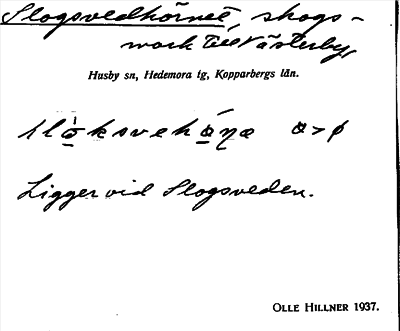 Slogsvedhörnet, skogs-
mark till Västerby,
Husby sn, Hedemora tg, Kopparbergs län.
Ligger vid Slogsveden.
OLLE HILLNER 1937.